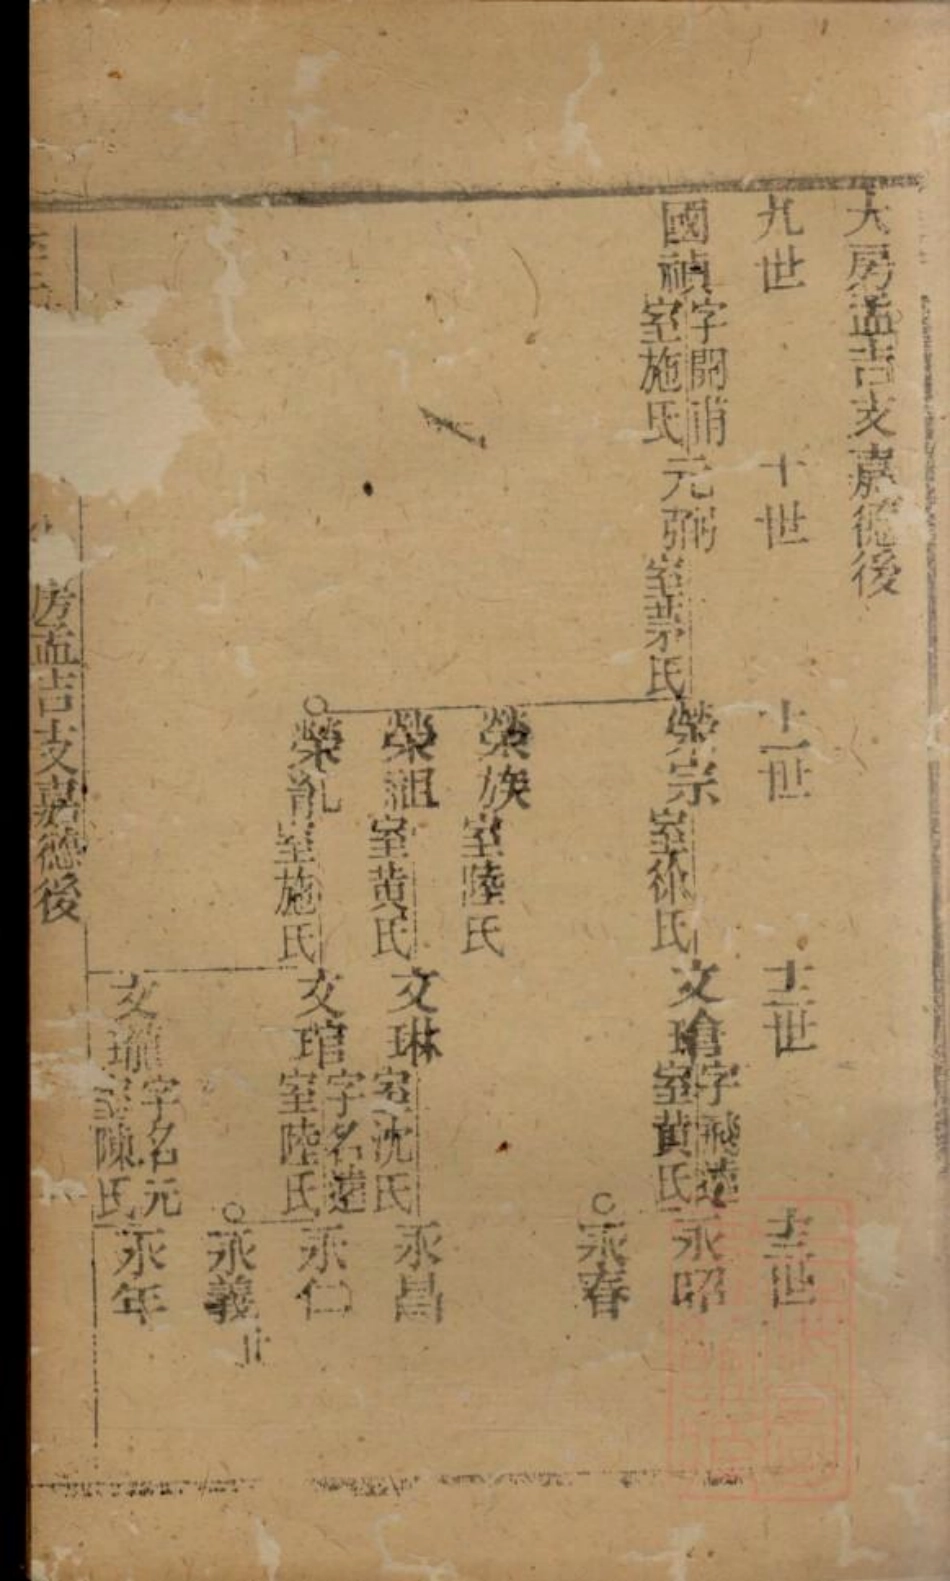 大房孟吉支嘉德後
九世
十世
十一世
十二世
十三世
國禎
字開甫
室施氏
元弼
室茅氏
榮宗
室徐氏
文瑲
字飛遠
室黃氏
永昭
永春
榮族
室陸氏
榮祖
室黃氏
文琳
室沈氏
永昌
榮胤
室施氏
文琯
字名遠
室陸氏
永仁
永義
文瑜
字名元
室陳氏
永年
房孟吉支嘉德後